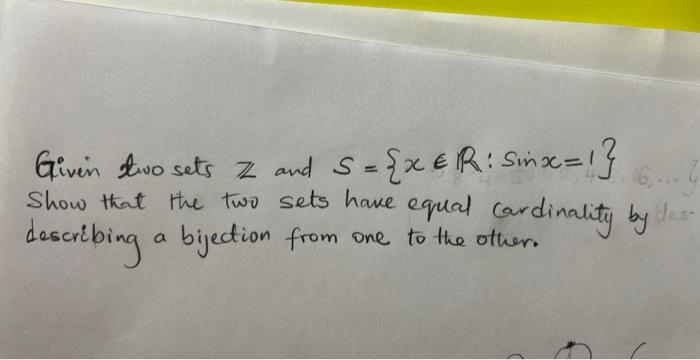 Givin two sets Z and S = {x ∈ ℝ : Sinx = 1}
Show that the two sets have equal cardinality by
describing a bijection from one to the other.